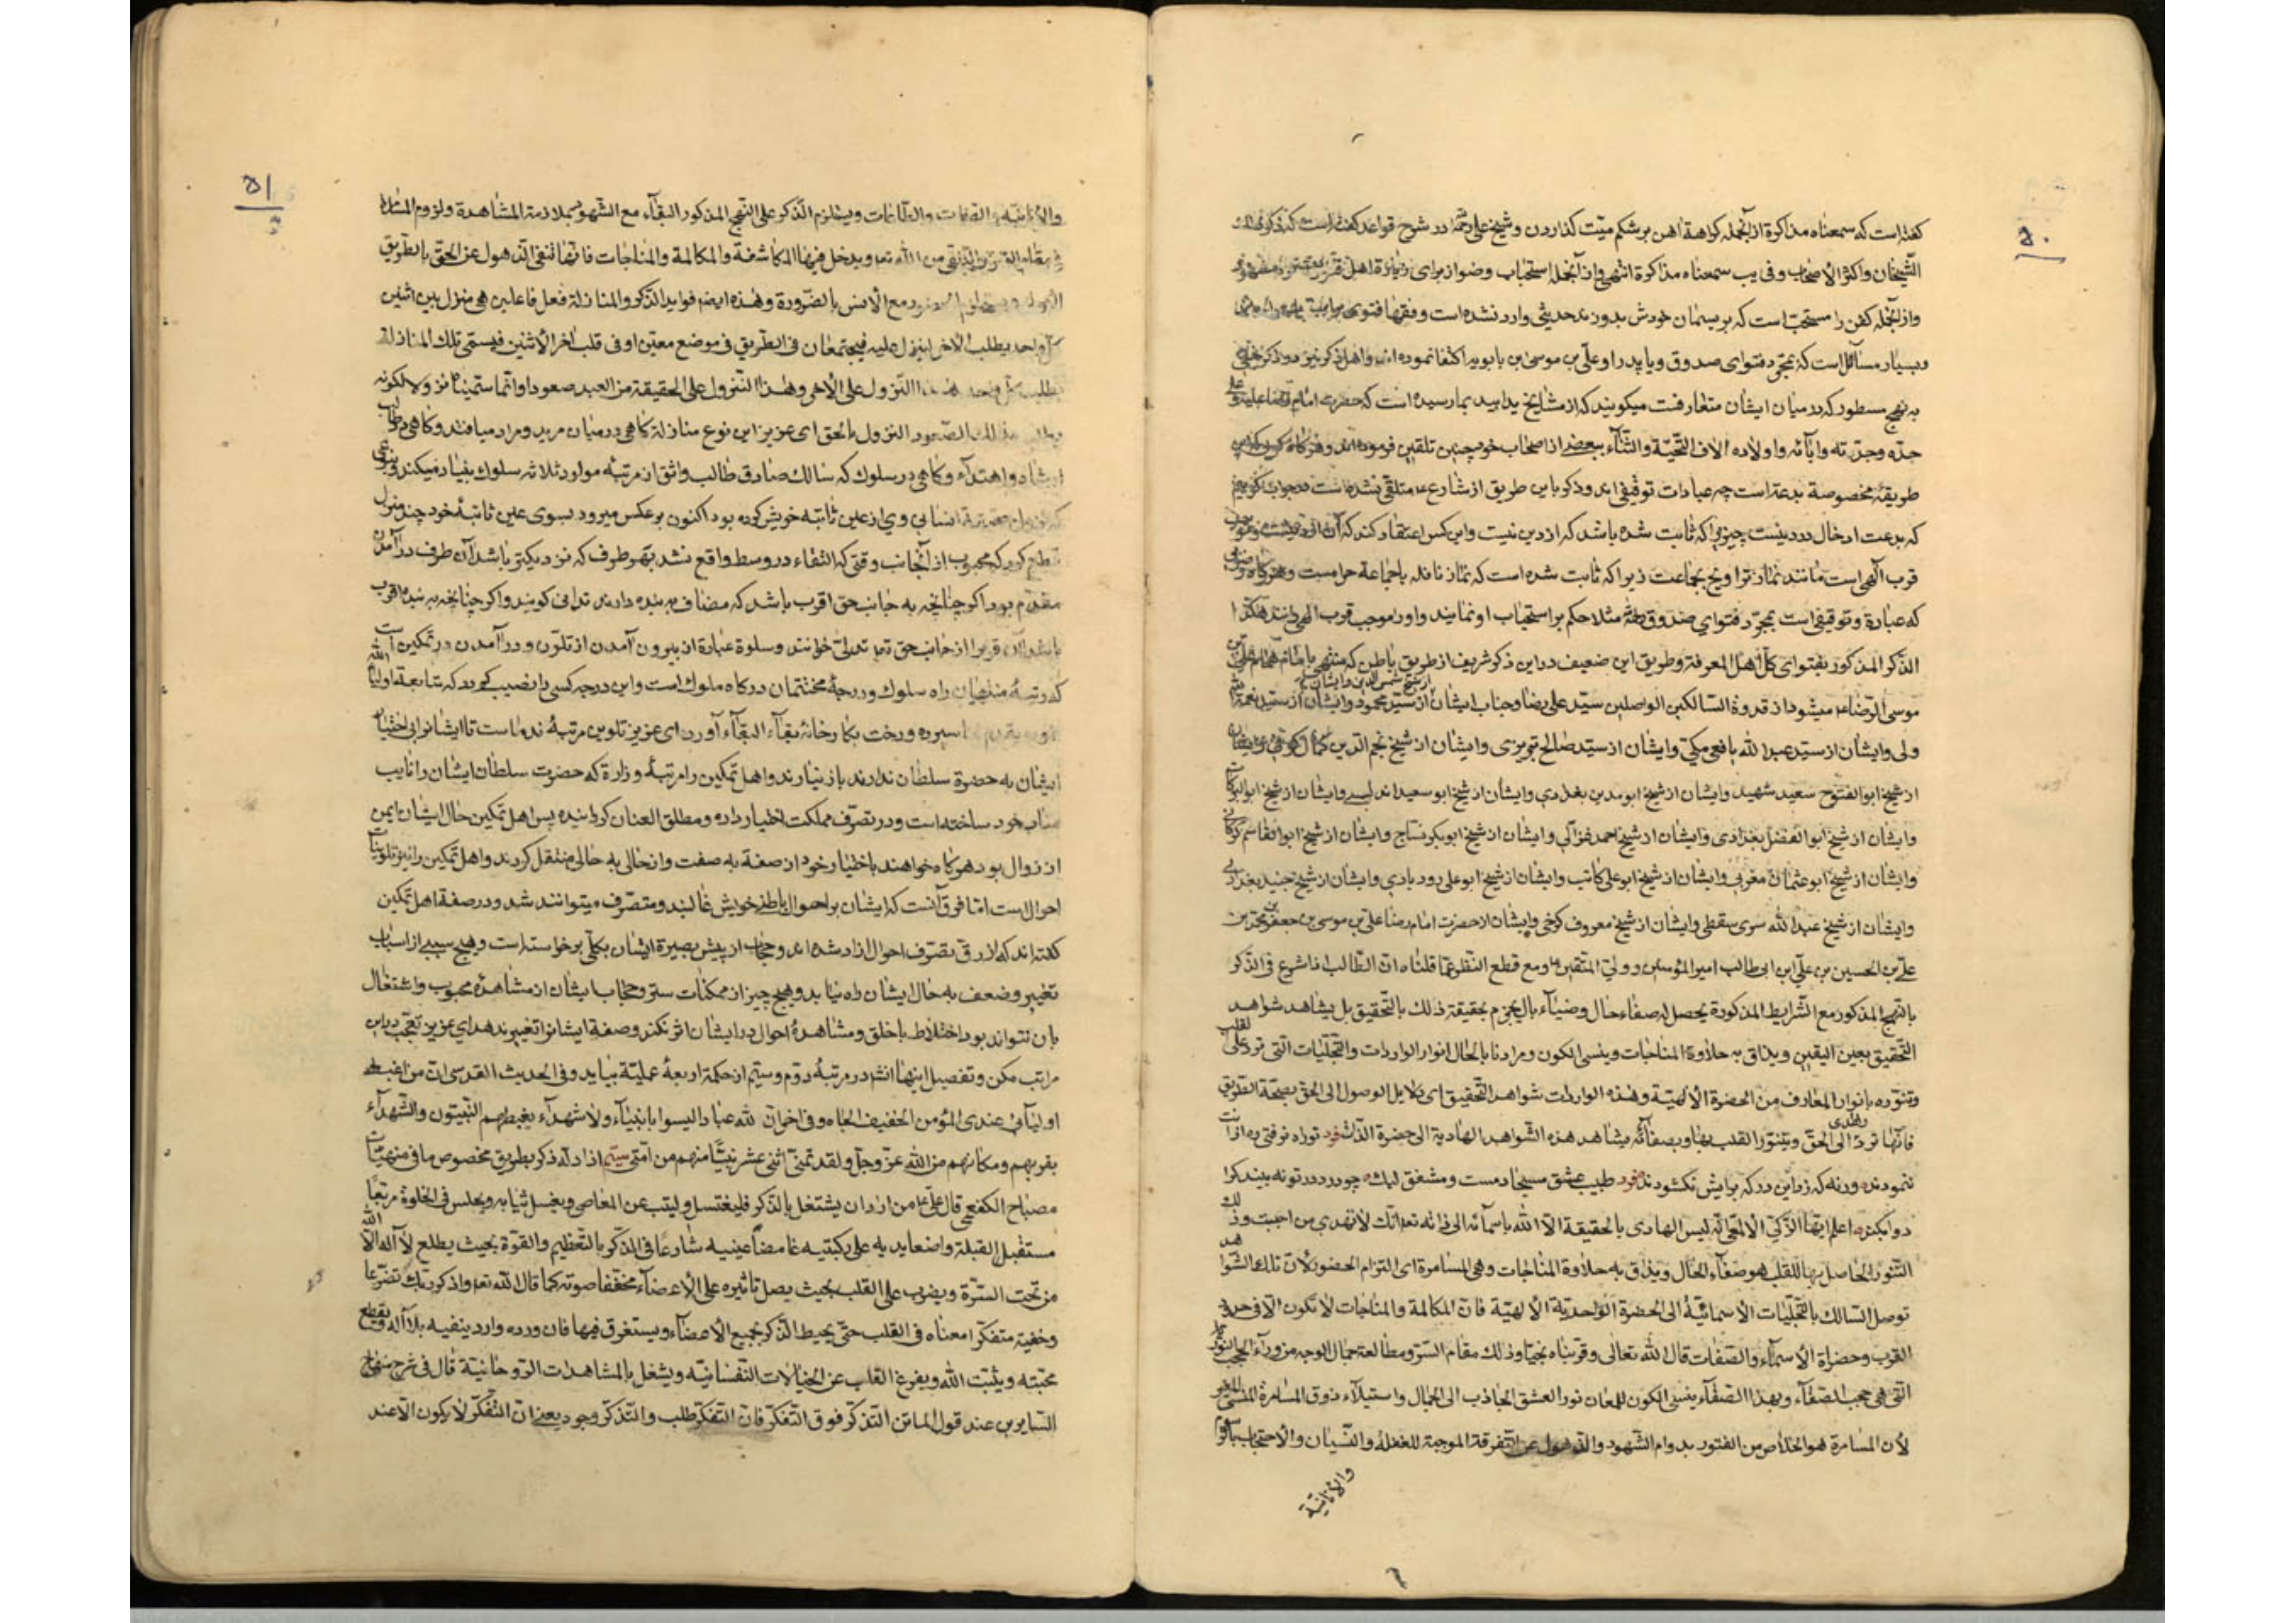 ۵۰
کفته است که سمعناه مذاکرة از آنجمله کراهة آهن بر شکم میّت کذاردن و شیخ علی در شرح قواعد کفته است که ذکره
الشّیخان و اکثر الأصحاب و فی یب سمعناه مذاکرة انتهی و از آنجمله استحباب وضو از برای زیارة اهل
و از آنجمله کفن را مستحبّ است که بریسمان خودش بدوزند حدیثی وارد نشده است و فقها فتوی
و بسیار مسائل است که بمجرّد فتوای صدوق و یا پدر او علیّ بن موسی بن بابویه اکتفا نموده‌اند و اهل ذکر نیز در ذکر
به نهج مسطور که در میان ایشان متعارفست میکویند که از مشایخ یدا بید بما رسیده است که حضرت امام رضا علیه و علی
جدّه و جدّته و آبائه و اولاده الاف التّحیّة و الثّناء ببعضی از اصحاب خود چنین تلقین فرموده‌اند و هرکاه کوید که این
طریقهٔ مخصوصة بدعتست چه عبادات توقیفی‌اند و ذکر باین طریق از شارع ع متلقّی نشده است در جواب کوئیم
که بدعت ادخال در دینست چیزیرا که ثابت شده باشد که از دین نیست و این کس اعتقاد کند که آن از دینست و موجب
قرب الهی است مانند نماز تراویح بجماعت زیرا که ثابت شده است که نماز نافله باجماعة حرامست و هرکاه وضوئی
که عبارة و توقیفی است بمجرّد فتوای صدوق مثلا حکم بر استحباب او نمایند و او را موجب قرب الهی دانند هکذا
الذّکر المذکور بفتوای کلّ اهل المعرفة و طریق این ضعیف در این ذکر شریف از طریق باطن که منتهی بامام همام علیّ بن
موسی الرّضا ع میشود از قدوة السّالکین الواصلین سیّد علی رضا و جناب ایشان از شیخ شمس الدین و ایشان از سیّد محمود و ایشان از سیّد نعمة الله
ولی و ایشان از سیّد عبد الله یافعی مکّی و ایشان از سیّد صالح بربری و ایشان از شیخ نجم الدین کمال کوفی و ایشان
از شیخ ابو الفتوح سعید شهید و ایشان از شیخ ابو مدین بغدادی و ایشان از شیخ ابو سعید اندلسی و ایشان از شیخ ابو البرکات
و ایشان از شیخ ابو الفضل بغدادی و ایشان از شیخ احمد غزالی و ایشان از شیخ ابوبکر نسّاج و ایشان از شیخ ابو القاسم کرکانی
و ایشان از شیخ ابو عثمان مغربی و ایشان از شیخ ابو علی کاتب و ایشان از شیخ ابو علی رودباری و ایشان از شیخ جنید بغدادی
و ایشان از شیخ عبد الله سری سقطی و ایشان از شیخ معروف کرخی و ایشان از حضرت امام رضا علیّ بن موسی بن جعفر بن محمّد بن
علیّ بن الحسین بن علیّ ابن ابی طالب امیر المؤمنین و ولیّ المتّقین ع و مع قطع النظر عمّا قلناه انّ الطّالب اذا شرع فی الذّکر
بالنّهج المذکور مع الشّرایط المذکورة یحصل له صفاء حال و ضیاء بال یجزم بحقیقة ذلک بالتّحقیق بل یشاهد شواهد
التّحقیق بعین الیقین و یذاق به حلاوة المناجات و ینسی الکون و مرادنا بالحال انوار الواردات و التّجلّیات الّتی ترد علی القلب
و تنوّره بانوار المعارف من الحضرة الألهیّة و هذه الواردات شواهد التّحقیق ای دلایل الوصول الی الحق بصحّة الطّریق
فانّها تردّ الی الحقّ و یهدی و یتنوّر القلب بها و بصفائه یشاهد هذه الشّواهد الهادیة الی حضرة الذّات فرد تو راه نرفتی ره ازانت
ننمودند ورنه که زد این در که برایش نکشودند فرد طبیب عشق مسیحا دمست و مشفق لیک چو درد در تو نه بیند کرا
دوا بکند اعلم ایّها الزّکیّ الألمعی انّه لیس الهادی بالحقیقة الّا الله باسمائه الی ذاته تع انّک لا تهدی من احببت و ذلک
التّنوّر الحاصل بها للقلب هو صفاء الحال و یذاق به حلاوة المناجات و هی المسامرة ای التزام الحضور لأنّ تلک الشّواهد
توصل السّالک بالتّجلّیات الأسمائیّة الی الحضرة الواحدیّة الألهیّة فانّ المکالمة و المناجات لا تکون الّا فی حدّ
القرب و حضراة الأسماء و الصّفات قال الله تعالی و قرّبناه نجیّا و ذلک مقام السّرّ و مطالعة جمال الوجه من وراء الحجب النّوریّة
الّتی هی حجب الصّفاء و بهذا الصّفاء ینسی الکون للمعان نور العشق الجاذب الی الجمال و استیلاء ذوق المسامرة المنسی للغیر
لأن المسامرة هو الخلاص من الفتور بدوام الشّهود و الذّهول عن التّفرقة الموجبة للغفلة و النّسیان و الاحتجاب
و الأنانیّة
۵۱
و الأنانیّة و الصّفات و یستلزم الذّکر علی النّهج المذکور البقاء مع الشّهود بملازمة المشاهدة و لزوم المسامرة
و یدخل فیها المکاشفة و المکالمة و المناجات فانّها تنفی الذّهول عن الحقّ بالطّریق
مع الأنس بالضّرورة و هذه ایضا فواید الذّکر و المنازلة فعل فاعلین هی منزل بین اثنین
کلّ واحد یطلب الآخر لینزل علیه فیجتمعان فی الطّریق فی موضع معیّن او فی قلب آخر الأثنین فیسمّی تلک المنازلة
النّزول علی الآخر و هذا النّزول علی الحقیقة من العبد صعود و انّما سمّینا نزولا لکونه
یطلب بذلک الصّعود النزول بالحق ای عزیز این نوع منازلة کاهی در میان مرید و مراد میافتد و کاهی در طالب
ارشاد و اهتداء و کاهی در سلوک که سالک صادق طالب واثق از مرتبهٔ موالد ثلاثه سلوک بنیاد میکند و بنوعی
انسانی وی از عین ثابتهٔ خویش کرده بود اکنون بر عکس میرود بسوی عین ثابتهٔ خود چند منزل
قطع کرد که محبوب از آنجانب وقتی که التقاء در وسط واقع نشد بهر طرف که نزدیکتر باشد آن طرف در آمدن
مقدّم بود اکر چنانچه به جانب حق اقرب باشد که مضاف به بنده دارند تدانی کویند و اکر چنانچه به بنده اقرب
باشد آن قربرا از جانب حق تع تدلّی خوانند و سلوة عبارة از بیرون آمدن از تلوّن و در آمدن در تمکین است
که رتبهٔ منتهیان راه سلوک و درجهٔ محتشمان درکاه ملوک است و این درجه کسی را نصیب کردد که متابعة اولیاء الله
سپرده و رخت بکارخانهٔ بقاء البقاء آورد ای عزیز تلوین مرتبهٔ ندماست تا ایشانرا بی اختیار
ایشان به حضرة سلطان ندارند باز نیارند و اهل تمکین را مرتبهٔ وزارة که حضرت سلطان ایشان را نایب
مناب خود ساخته است و در تصرّف مملکت اختیار داده و مطلق العنان کردانیده پس اهل تمکین حال ایشان ایمن
از زوال بود هرکاه خواهند باختیار خود از صفة به صفت و از حالی به حالی منتقل کردند و اهل تمکین را نیز تلوینات
احوال است امّا فرق آنست که ایشان بر احوال باطن خویش غالبند و متصرّف میتوانند شد و در صفة اهل تمکین
کفته‌اند که از رقّ تصرّف احوال آزاد شده‌اند و حجاب از پیش بصیرة ایشان بکلّی برخواسته است و هیچ سببی از اسباب
تغییر و ضعف به حال ایشان راه نیابد و هیچ چیز از ممکنات ستر و حجاب ایشان از مشاهدهٔ محبوب و اشتغال
بان نتواند بود اختلاط باخلق و مشاهدهٔ احوال در ایشان اثر نکند و صفة ایشانرا تغییر ندهد ای عزیز تعجّب در این
مراتب مکن و تفصیل اینها انشا در مرتبهٔ دوّم و سیّم از حکمة اربعهٔ عملیّة بیاید و فی الحدیث القدسی انّ من اغبط
اولیائی عندی المؤمن الخفیف الحاذ و فی اخر انّ للّه عبادا لیسوا بانبیاء و لا شهداء یغبطهم النّبیّون و الشّهداء
بقربهم و مکانهم من الله عزّ و جلّ و لقد تمنّی اثنی عشر نبیّا منهم من امّتی سیّم از ادلّه ذکر بطریق مخصوص ما فی منهیّات
مصباح الکفعمی قال علیّ ع من اراد ان یشتغل بالذّکر فلیغتسل و لیتب عن المعاصی و یغسل ثیابه و یجلس فی الخلوة مرتبعا
مستقبل القبلة واضعا یدیه علی رکبتیه غامضا عینیه شارعا فی الذّکر بالتّعظیم و القوّة بحیث یطلع لا اله الّا الله
من تحت السّرّة و یضرب علی القلب بحیث یصل تاثیره علی الأعضاء مخفّفا صوته کما قال الله تع و اذکر ربّک تضرّعا
و خفیة متفکّرا معناه فی القلب حتّی یحیط الذّکر بجمیع الأعضاء و یستغرق فیها فان ورده وارد ینفیه بلا اله و یقطع
محبّته و یثبت الله و یفرغ القلب عن الخیالات النّفسانیّه و یشغل بالمشاهدات الرّوحانیّة قال فی شرح منهاج
السّایرین عند قول الماتن التّذکّر فوق التّفکّر فانّ التّفکّر طلب و التّذکّر وجود یعنی انّ التّفکّر لا یکون الّا عند